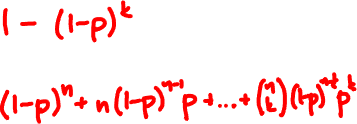 1 - (1-p)^k
(1-p)^n + n(1-p)^{n-1}p + ... + \binom{n}{k}(1-p)^{n-k}p^k